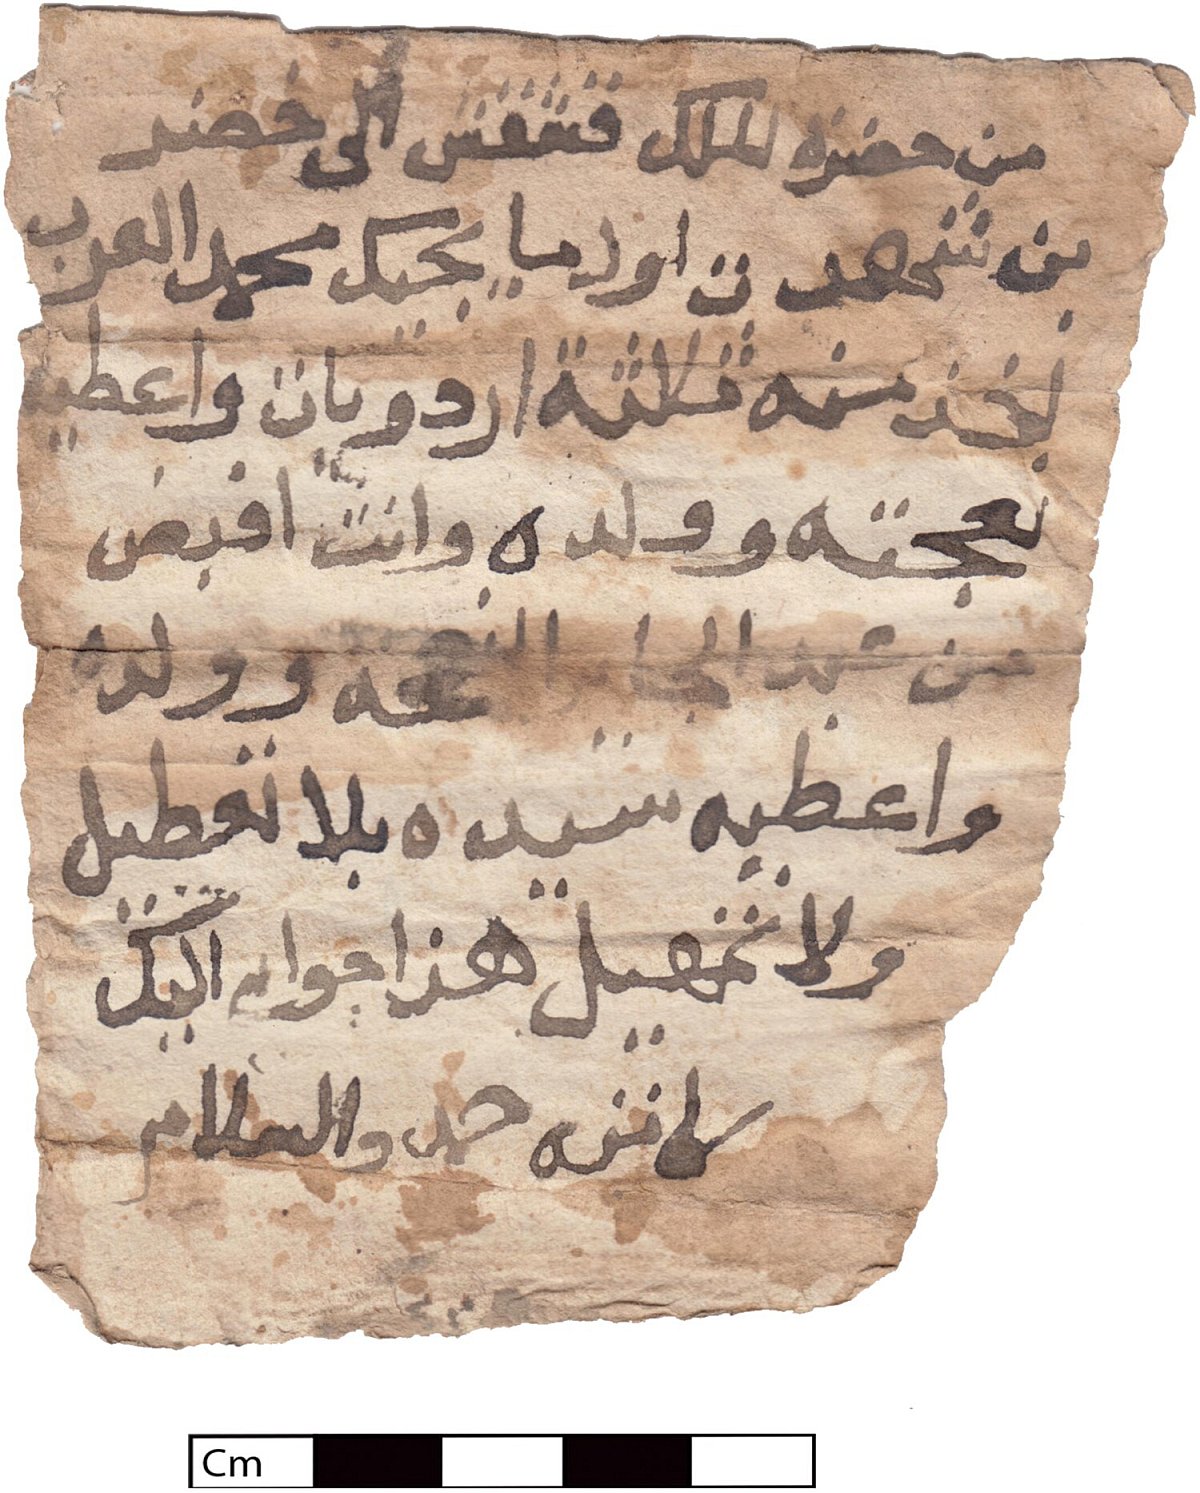 من حضرة الملك قشقش الى خضر
بن شهدت اول ما يجيك محمد العرب
تاخذ منه ثلاثة اردويات واعطيه
نعجته وولده وانت اقبض
من عبد الجابر النعجه وولده
واعطيه سيده بلا تعطيل
ولا تمهيل هذا جوابي اليك
كاتبه حمد والسلام
Cm